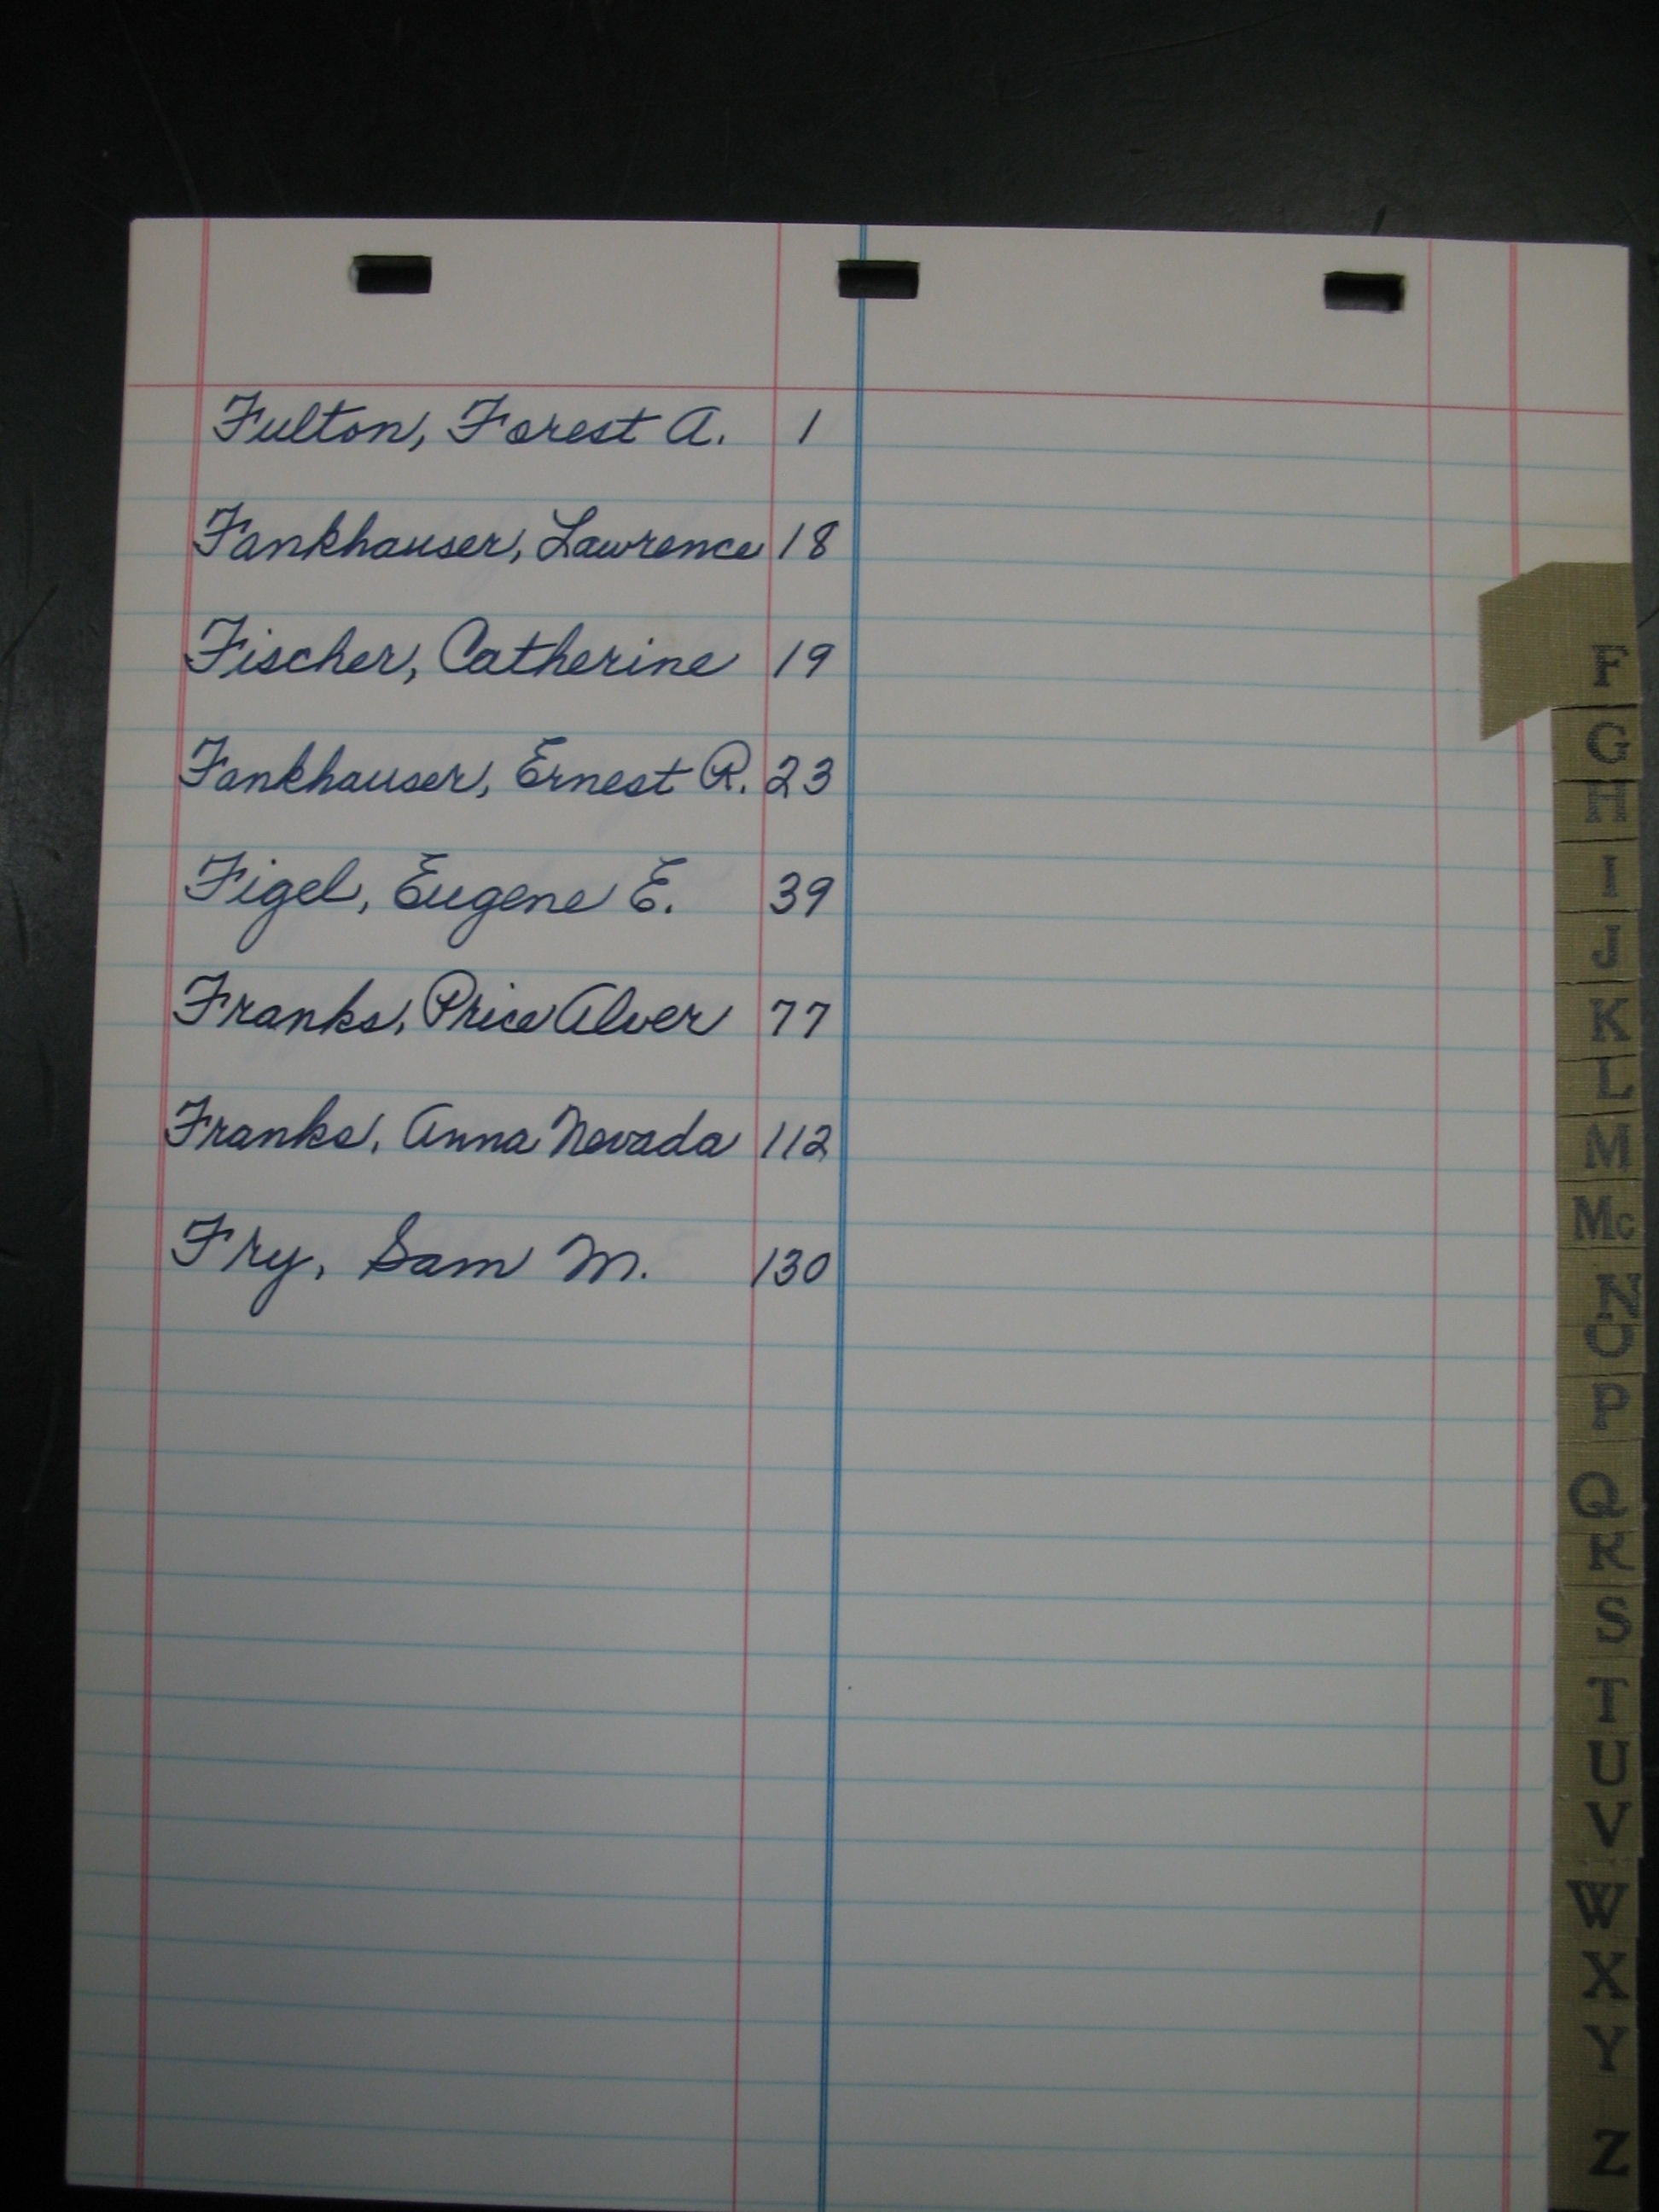 Fulton, Forest A. 1
Fankhauser, Lawrence 18
Fischer, Catherine 19
Fankhauser, Ernest R. 23
Figel, Eugene E. 39
Franks, Price Alver 77
Franks, Anna Nevada 112
Fry, Sam M. 130
F
G
H
I
J
K
L
M
Mc
N
O
P
Q
R
S
T
U
V
W
X
Y
Z